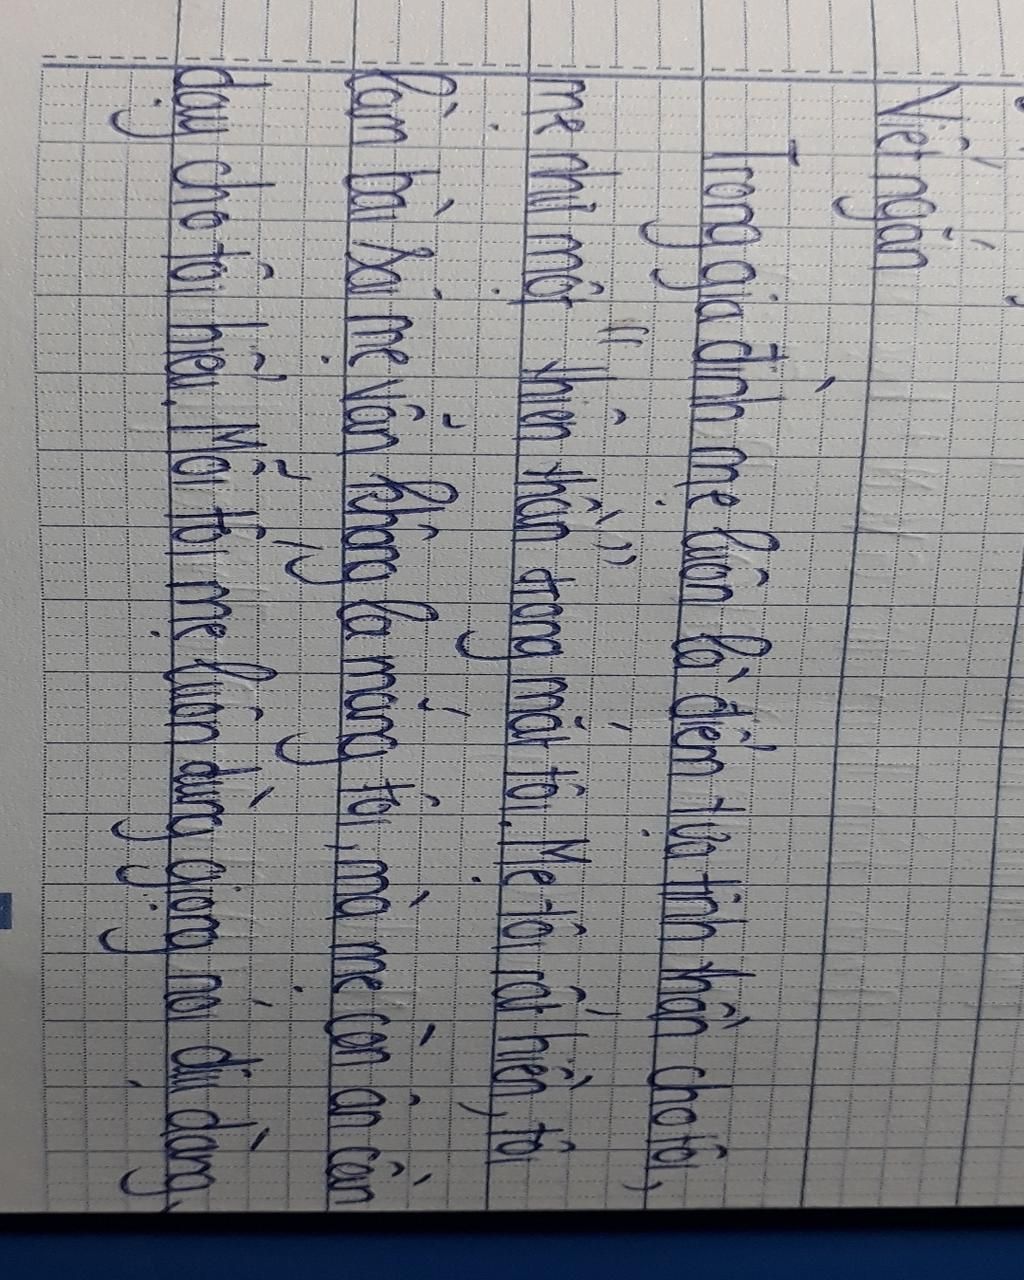 Viết ngắn
Trong gia đình mẹ luôn là điểm tựa tinh thần cho tôi,
mẹ như một "thiên thần" trong mắt tôi. Mẹ tôi rất hiền, tôi
làm bài sai mẹ vẫn không la mắng tôi, mà mẹ còn ân cần
dạy cho tôi hiểu. Mỗi tối, mẹ luôn dùng giọng nói dịu dàng,